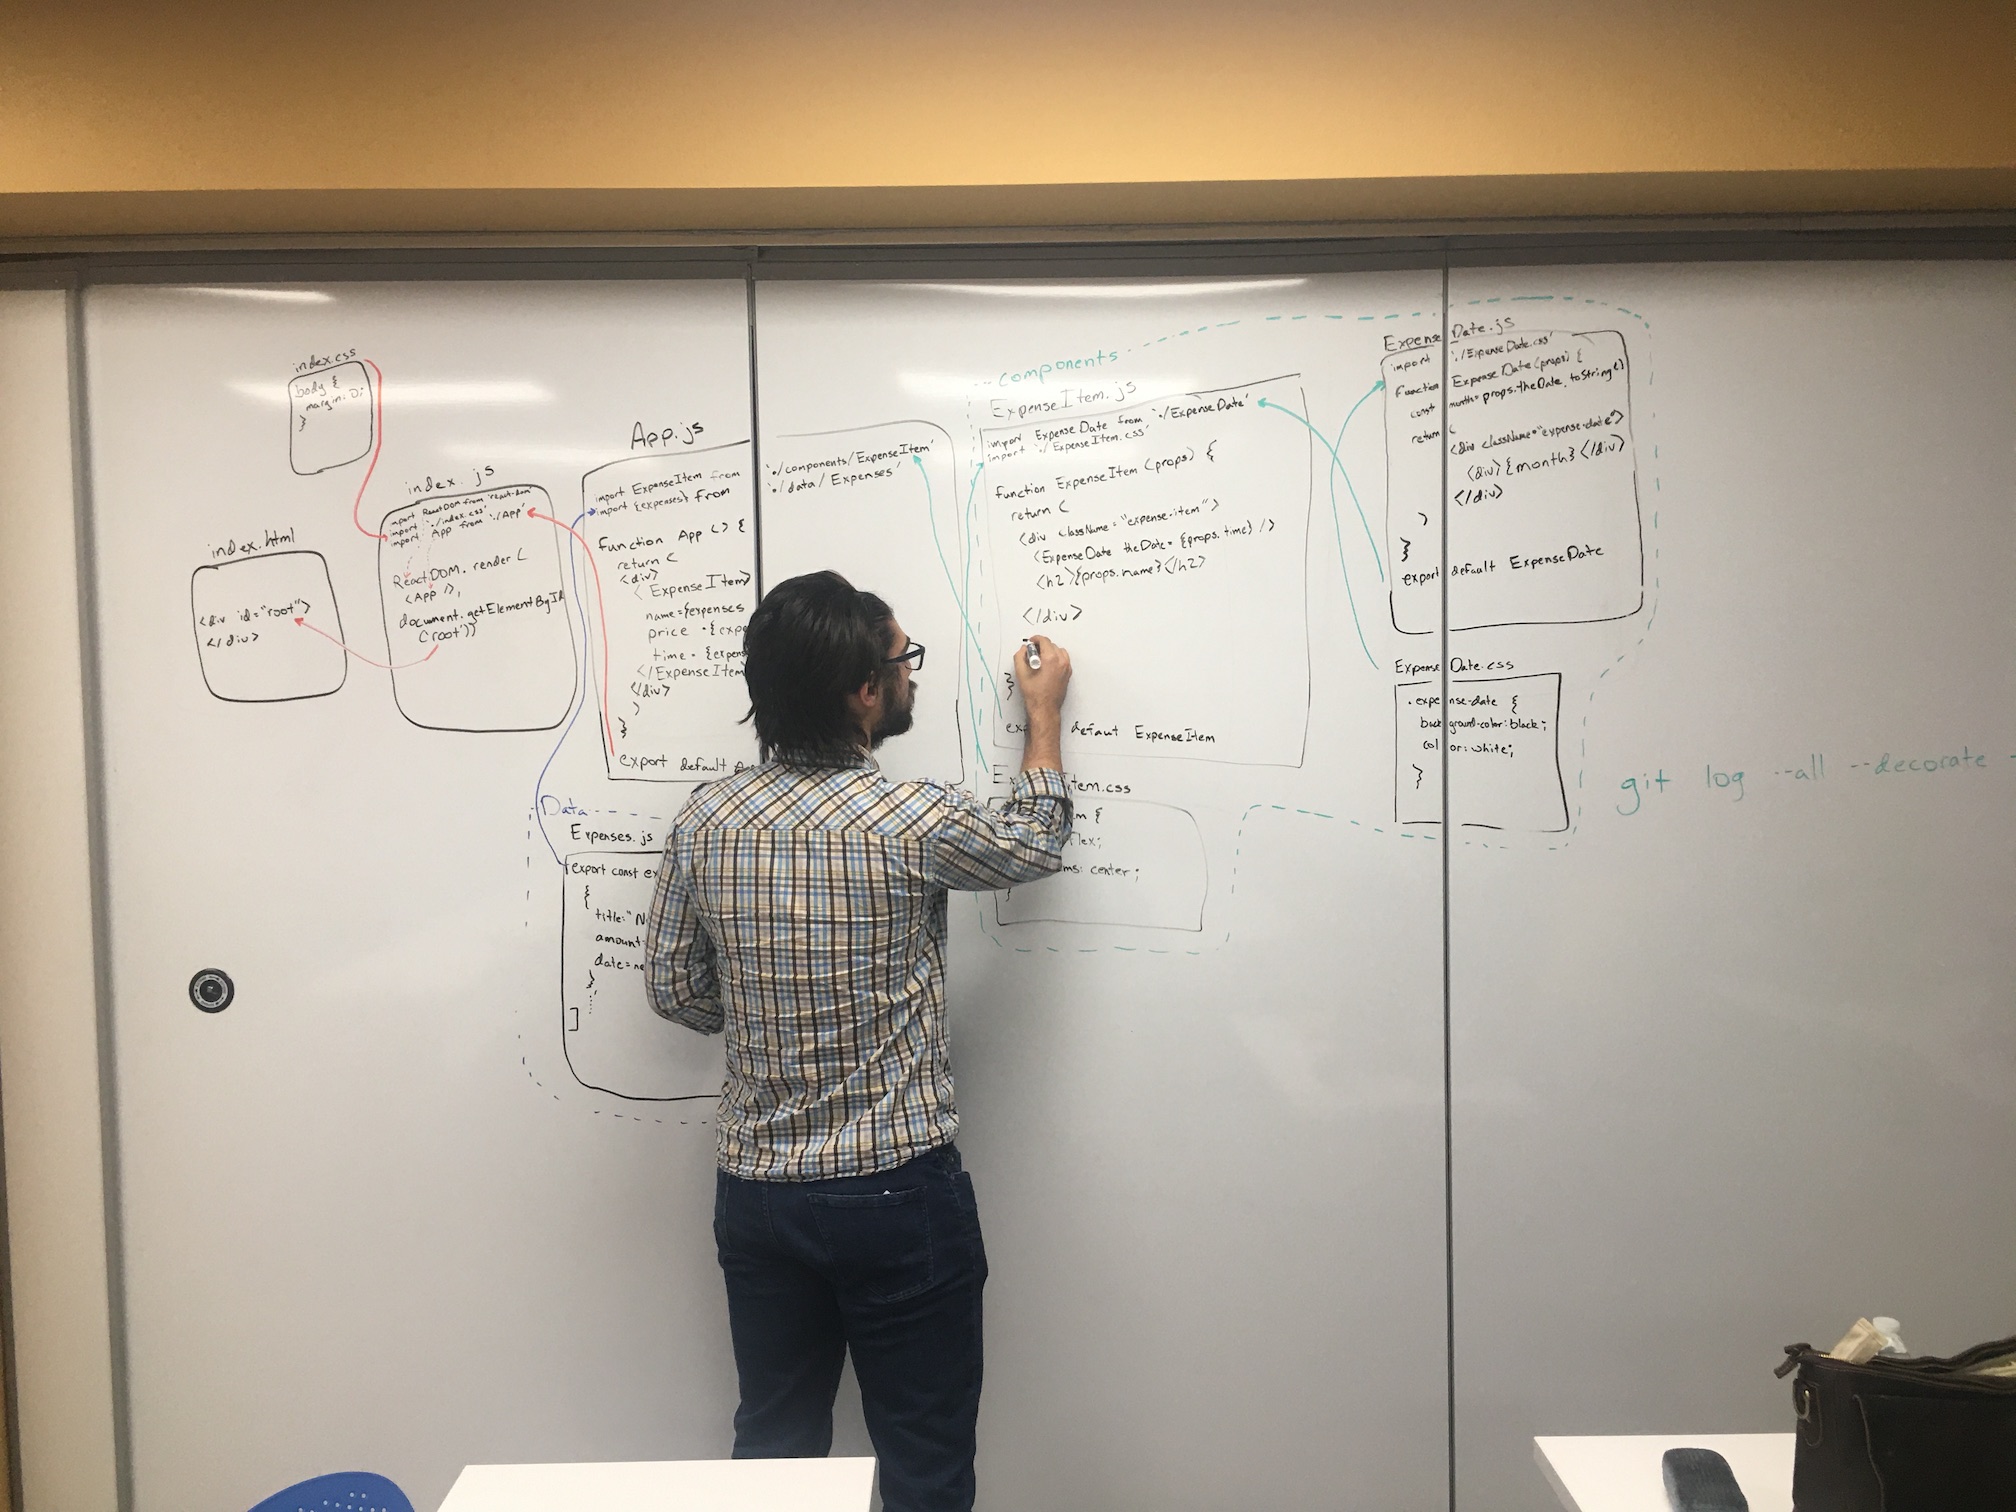 index.css
body {
margin: 0;
}
index.html
<div id="root">
</div>
index.js
import ReactDOM from 'react-dom'
import './index.css'
import App from './App'
ReactDOM.render(
<App />,
document.getElementById
('root'))
App.js
import ExpenseItem from './components/ExpenseItem'
import {expenses} from './data/Expenses'
function App () {
return (
<div>
<ExpenseItem
name={expenses
price={expe
time={expen
</ExpenseItem>
</div>
)
}
export default
Data
Expenses.js
export const ex
{
title: "N
amount
date = ne
}
]
components
ExpenseItem.js
import ExpenseDate from './ExpenseDate'
import './ExpenseItem.css'
function ExpenseItem (props) {
return (
<div className="expense-item">
<ExpenseDate theDate={props.time} />
<h2>{props.name}</h2>
</div>
}
defaut ExpenseItem
tem.css
m {
flex;
ms: center;
}
ExpenseDate.js
import './ExpenseDate.css'
function ExpenseDate(props) {
const month= props.theDate.toString()
return (
<div className="expense-date">
<div>{month}</div>
</div>
)
}
export default ExpenseDate
ExpenseDate.css
.expense-date {
background-color: black;
color: white;
}
git log --all --decorate -